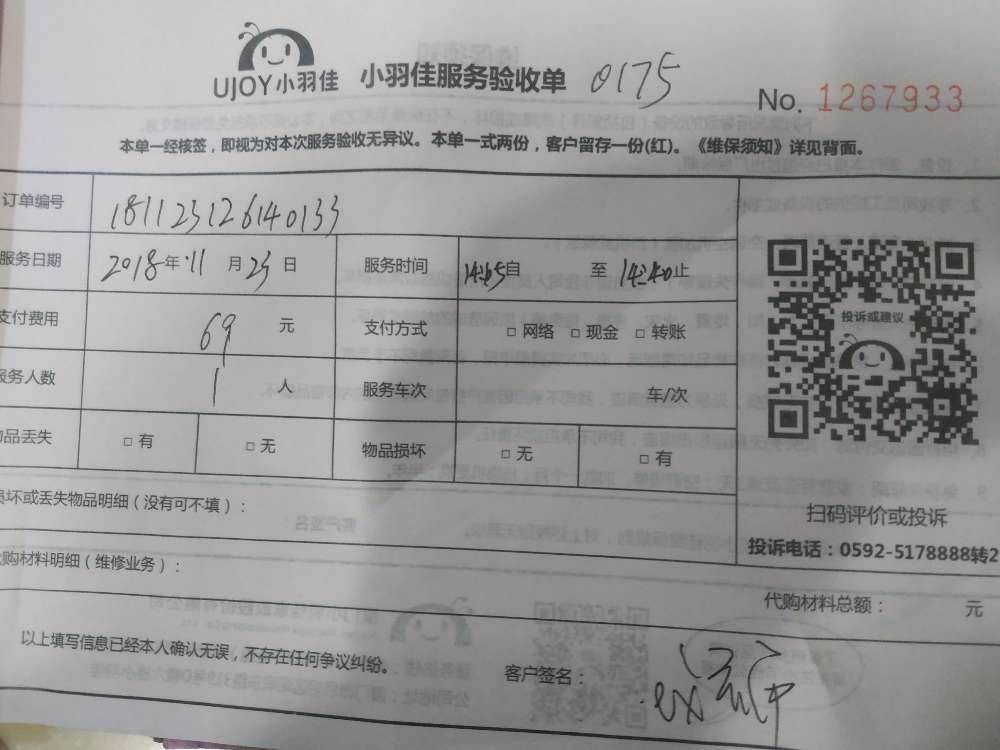 UJOY小羽佳 小羽佳服务验收单 0175
No. 1267933
本单一经核签，即视为对本次服务验收无异议。本单一式两份，客户留存一份(红)。《维保须知》详见背面。
订单编号 181123126140133
服务日期 2018年11月23日 服务时间 14:05自 至 14:40止
支付费用 69 元 支付方式 □ 网络 □ 现金 □ 转账
服务人数 1 人 服务车次 车/次
物品丢失 □ 有 □ 无 物品损坏 □ 无 □ 有
投诉或建议
扫码评价或投诉
投诉电话：0592-5178888转2
损坏或丢失物品明细（没有可不填）：
代购材料明细（维修业务）：
代购材料总额： 元
以上填写信息已经本人确认无误，不存在任何争议纠纷。
客户签名：